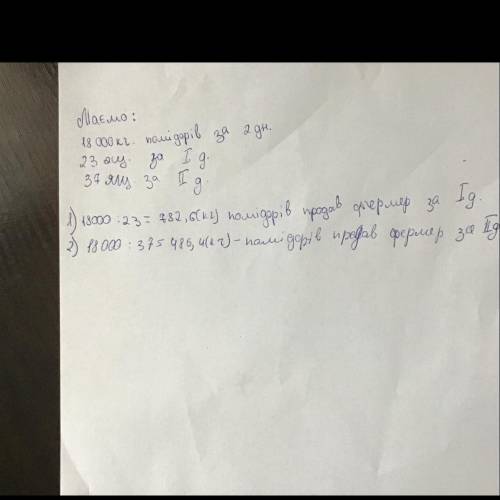 Маємо:
18 000 кг. помідорів за 2 дн.
23 ящ. за I д.
37 ящ. за II д.
1) 18000 : 23 = 782,6(кг) помідорів продав фермер за I д.
2) 18000 : 37 = 486,4(кг) - помідорів продав фермер за II д